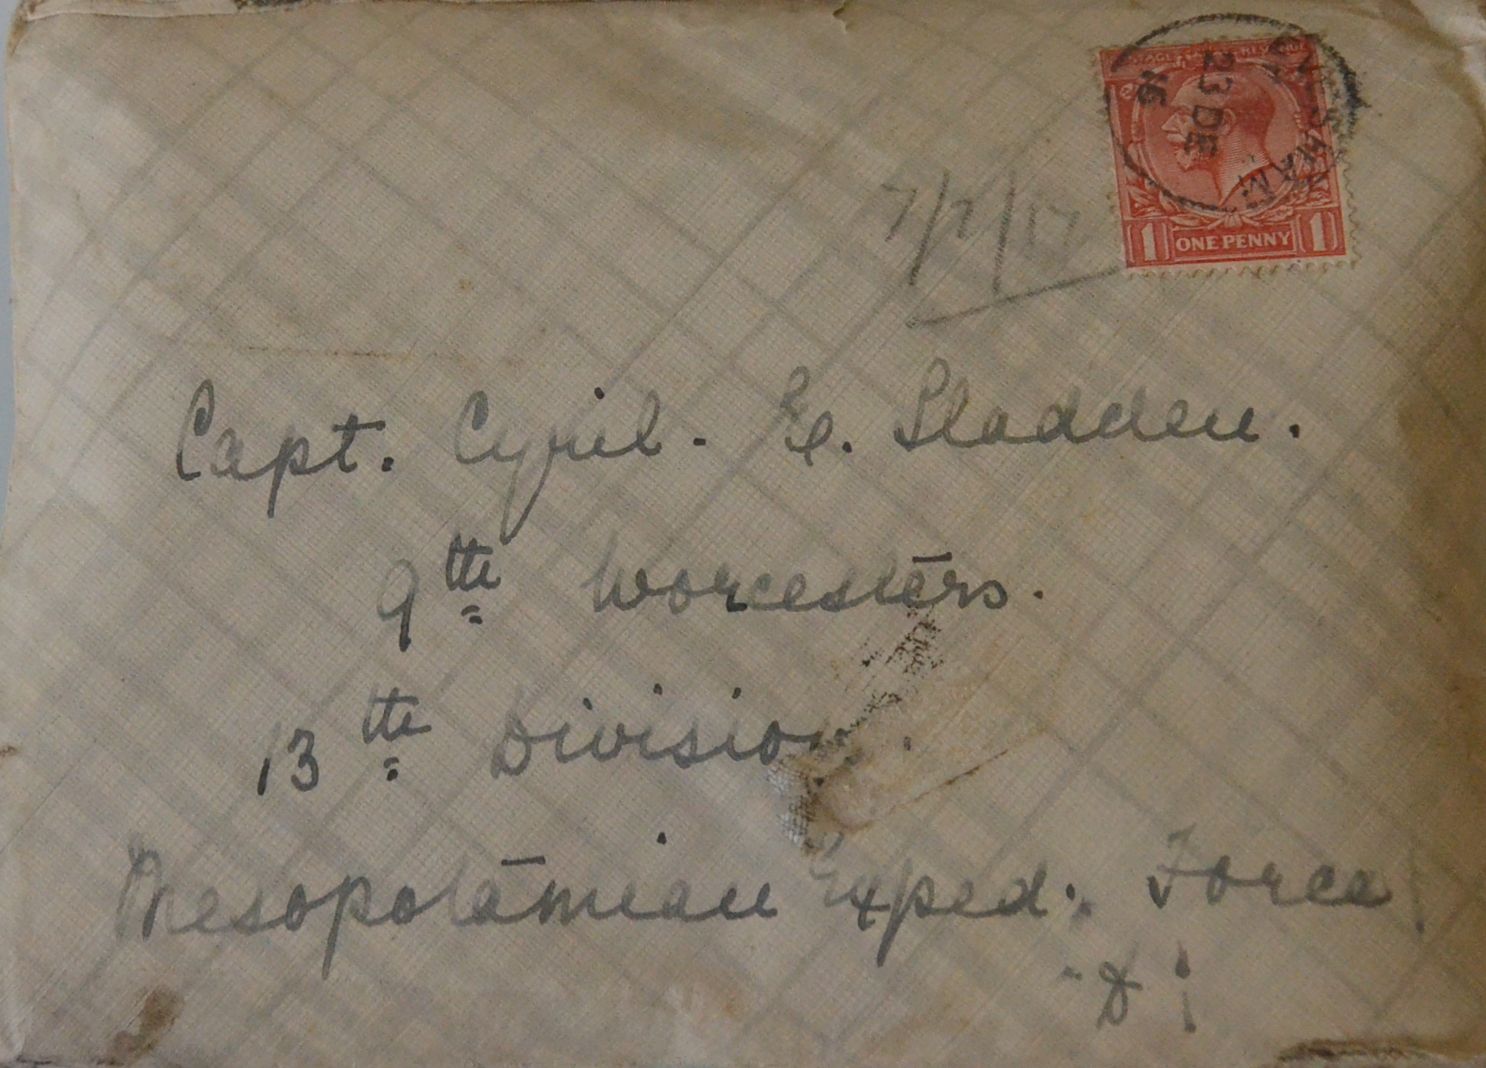 POSTAGE REVENUE
EVESHAM
23 DE
16
1 ONE PENNY 1
7/2/17
Capt. Cyril. E. Sladden.
9th Worcesters.
13th Division.
Mesopotamian Exped. Force
"D"